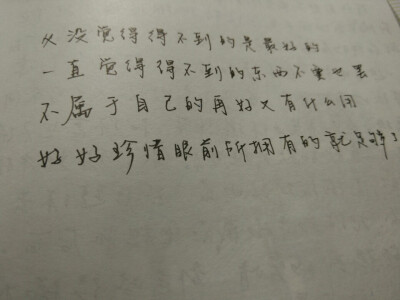 又没觉得得不到的是最好的
一直觉得得不到的东西不要也罢
不属于自己的再好又有什么用
好好珍惜眼前所拥有的就足够了